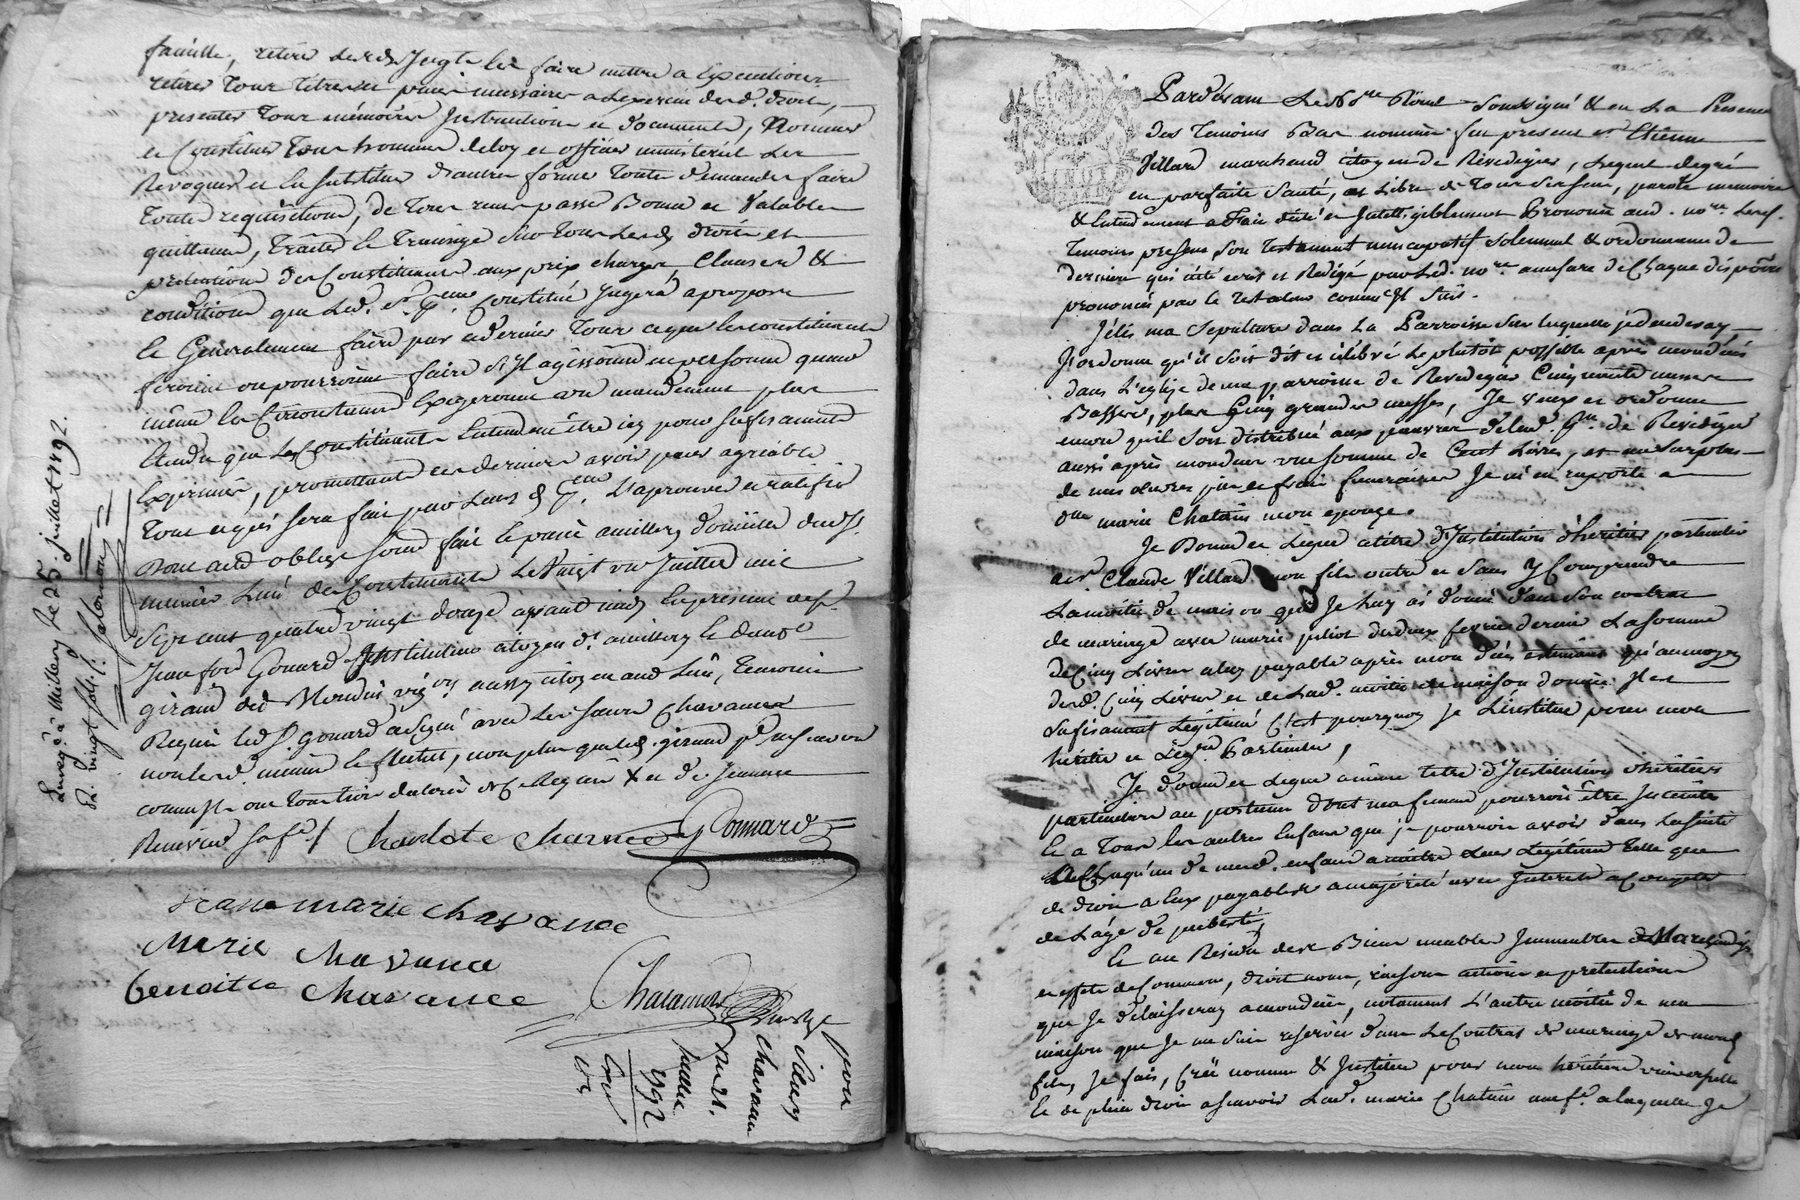 famille, retirer Jugts les faire mettre a Execution
retirer Tour titres et pieces necessaires a Lexercice desd. droits,
presenter Tour mémoires Instructions et documents, Nommer
et Constituer Tour hommes de loy et officiers ministeriel Les
Revoquer et En substituer d'autres former Toutes demandes faire
Toutes requisitions, de Tous reçus passer Bonne et Valable
quittance, Traiter et Transiger Sur Tous Lesd. droits et
pretentions des Constituants aux prix charges, Clauses &
conditions que Led. Sr. Constitué Jugera apropos
Et Généralement faire par a dernier Tour ce que les constituants
feroient ou pourroient faire S'Il agissoient en personne quand
même les Circonstances Exigeroient un mandement plus
Etendu que Les Constituants Entendent être icy pour Sufisament
Exprimés, promettant ces derniers avoir pour agréable
Tout ce qui sera fait par Leurs d. L'aprouver et ratifier
Dont acte obligé soumis fait et passé a millery domicille dud. S.
meunier L'un des Constituants Le Vingt un Juillet mil
Sept cent quatre vingt douze avant midy En presence de Sr.
Jean Gonard Instituteur citoyen dt. a millery et de
giraud dud. Vign. aussy citoyen aud Lieu, Temoins
Requis led. S. gonard a signé avec Les Sœurs Chavance
non led. meunier le fleuter, non plus que led. giraud
comme Ils ont Tous trois declaré de ce Requis & et de
Revenir
Charlote Charvence Gonnard
Jeane marie chavance
Merie Chavance
benoitte Chavance
Enregé. a Millery le 25 juillet 1792.
R. vingt sols
pour
Sœurs
Chavance
du 21.
juillet
1792
Pardevant Le Nore. Royal Soussigné & en La Presence
des Temoins Bas nommés fut present sr Etienne
Villard marchand citoyen de Rivedegier, Lequel degré
en parfaite Santé, et Libre de Tous Ses Sens, parole memoire
& Entendement a Fait dicté et Intelligiblement Prononcé aud. nore. Lesd.
Temoins presens Son Testament nuncupatif Solemnel & ordonnance de
derniere qui a été ecrit et Redigé par Led. nore. amesure de Chaque dispôon
prononcée par le testateur comme Il Suit.
J'élis ma Sepulture dans La Parroisse Sur laquelle je decederay
J'ordonne qu'il soit dit et célébré Le plutôt possible après mon décés
dans L'eglise de ma parroisse de Rivedegier Cinquante messes
Basses, plus Cinq grandes messes, Je veux et ordonne
encore qu'il Soit distribué aux pauvres de lad. de Rivedegier
aussi après mon deces une Somme de Cent Livres, et au Surplus
de mes œuvres pies et frais funeraires Je m'en raporte a
dlle marie Chatain mon epouse.
Je Donne et Legue a titre d'Institution d'heritier particulier
a sr Claude Villard mon fils outre et Sans y Comprendre
La moitié de maison que Je luy ai donné dans son contrat
de mariage avec marie du deux fevrier dernier La somme
de Cinq Livres a luy payable après mon décés estimant qu'au moyen
desd. Cinq Livres et de Lad. moitié de maison donnée Il est
Sufisament Légitimé C'est pourquoy Je L'institue pour mon
héritier et Légre. Particulier,
Je donne et Legue a même titre d'Institution d'héritiers
particuliers au posthume dont ma femme pourroit être Enceinte
Et a Tous les autres Enfans que je pourrois avoir dans La suite
et a Chaqu'un de mesd. enfans a naitre Leur Légitime Telle que
de droit a Eux payable a majorité avec Interets a Compter
de L'âge de puberté,
Et au Residu de Biens meubles Immeubles Marchandises
et effets de Commerce, droits noms, raisons actions et pretentions
que Je délaisseray a mon décés, notament L'autre moitié de ma
maison que Je me Suis reservée dans Le Contrat de mariage de mond.
fils, Je fais, Créé nomme & Institue pour mon héritiere universelle
Et de plein droit a scavoir Lad. marie Chatain ma fe. a laquelle Je